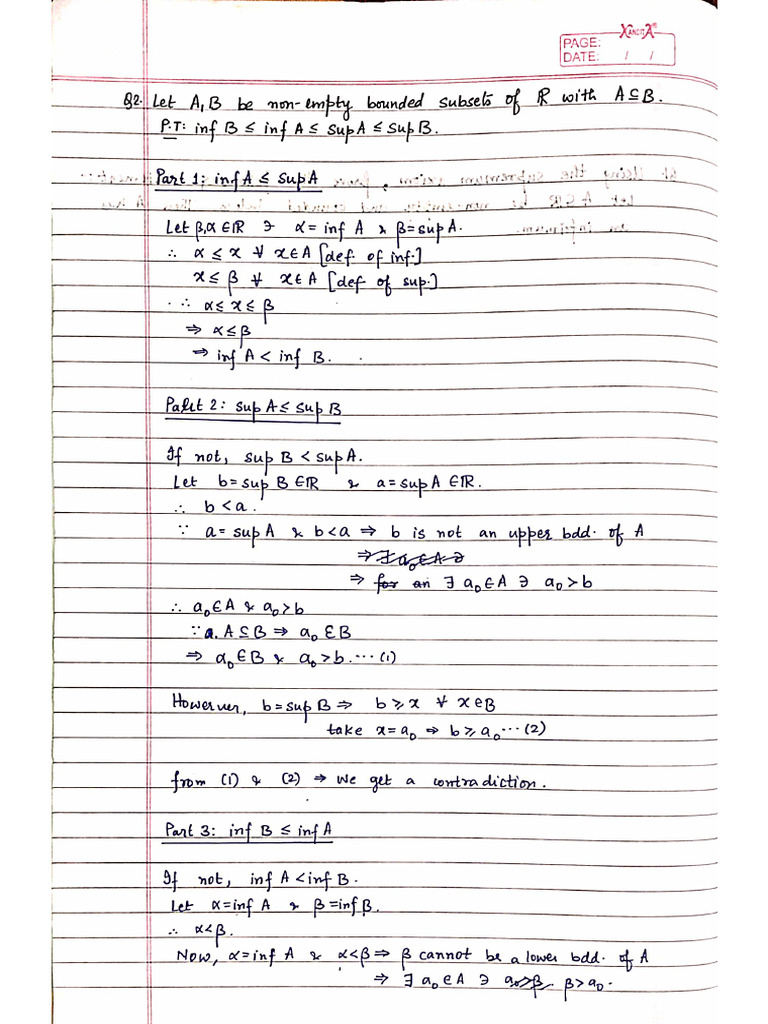 XANCITA
PAGE:
DATE: / /
Q2. Let A, B be non-empty bounded subsets of ℝ with A⊆B.
P.T: inf B ≤ inf A ≤ sup A ≤ sup B.
Part 1: inf A ≤ sup A
Let β,α ∈ ℝ ∋ α = inf A & β = sup A.
∴ α ≤ x ∀ x∈A [def. of inf.]
x ≤ β ∀ x∈A [def of sup.]
∴ α ≤ x ≤ β
⇒ α ≤ β
⇒ inf A < inf B.
Part 2: sup A ≤ sup B
If not, sup B < sup A.
Let b = sup B ∈ ℝ & a = sup A ∈ ℝ.
∴ b < a.
∵ a = sup A & b < a ⇒ b is not an upper bdd. of A
⇒ ∃ a₀∈A ∋
⇒ for an ∃ a₀∈A ∋ a₀ > b
∴ a₀∈A & a₀ > b
∵ a. A⊆B ⇒ a₀ ∈ B
⇒ a₀∈B & a₀ > b. ... (1)
However, b = sup B ⇒ b ≥ x ∀ x∈B
take x = a₀ ⇒ b ≥ a₀ ... (2)
from (1) & (2) ⇒ we get a contradiction.
Part 3: inf B ≤ inf A
If not, inf A < inf B.
Let α = inf A & β = inf B.
∴ α < β.
Now, α = inf A & α < β ⇒ β cannot be a lower bdd. of A
⇒ ∃ a₀ ∈ A ∋ a₀ > β β > a₀.